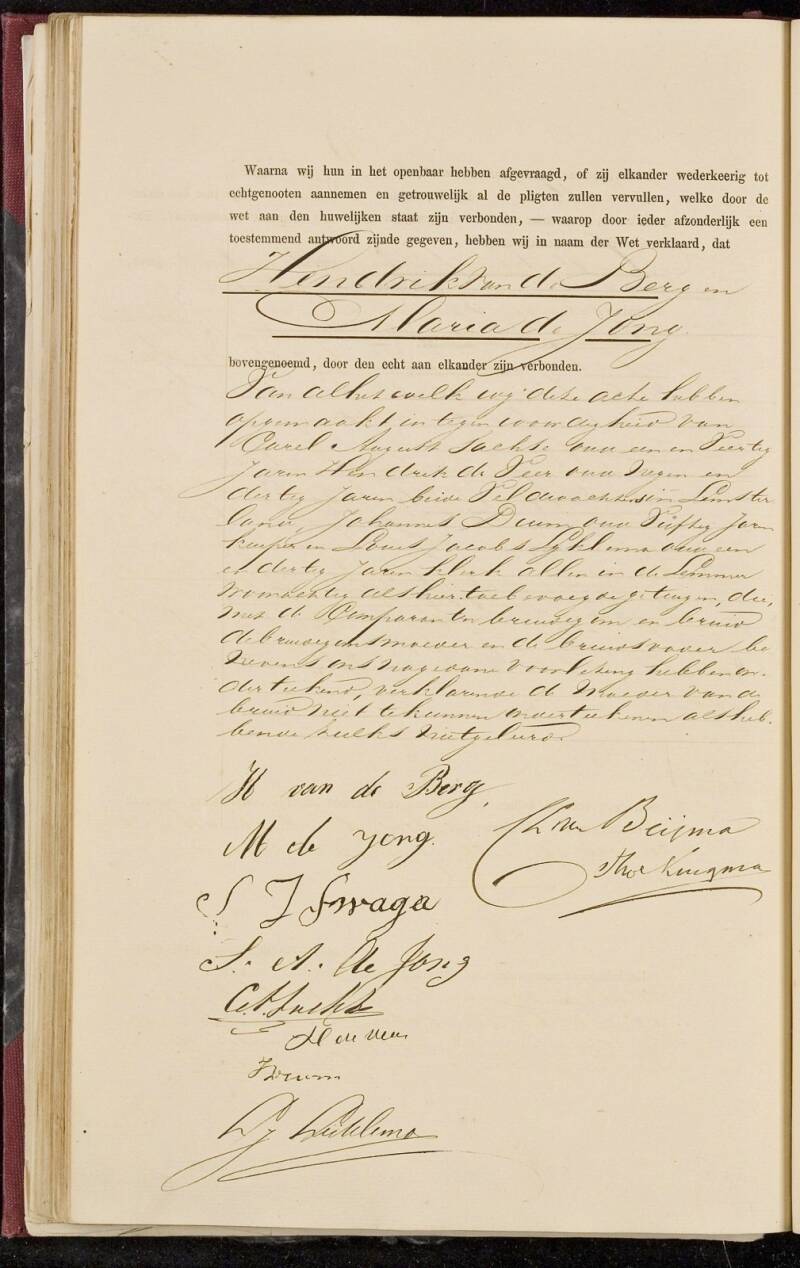 Waarna wij hun in het openbaar hebben afgevraagd, of zij elkander wederkeerig tot
echtgenooten aannemen en getrouwelijk al de pligten zullen vervullen, welke door de
wet aan den huwelijken staat zijn verbonden, — waarop door ieder afzonderlijk een
toestemmend antwoord zijnde gegeven, hebben wij in naam der Wet verklaard, dat
Hendrik van de Berg en
Maria de Jong
bovengenoemd, door den echt aan elkander zijn verbonden.
Van al hetwelk wij deze acte hebben
opgemaakt in tegenwoordigheid van
Carel August Sachse oud een en Veertig
Jaren Hendrik de Veer oud Negen en
dertig Jaren beide Veldwachters in Lemster
land, Johannes Doum oud Vijftig Jaren
kuiper en Louis Jacobs Lyklema oud een
en dertig Jaren klerk allen in de Lemmer
woonachtig als hiertoe bevoegde getuigen, die,
met de Comparanten bruidegom en bruid
de bruidegomsmoeder en de bruidsvader be
nevens ons na gedane voorlezing hebben on-
derteekend, verklarende de Moeder van de
bruid niet te kunnen onderteekenen als heb-
bende zulks niet geleerd.
H van de Berg,
M de Jong.
Chr van Beijma
thoe Kingma
S J Swaga
S. A. de Jong
C A Sachse
H de Veer
JDoum
L J Lyklema